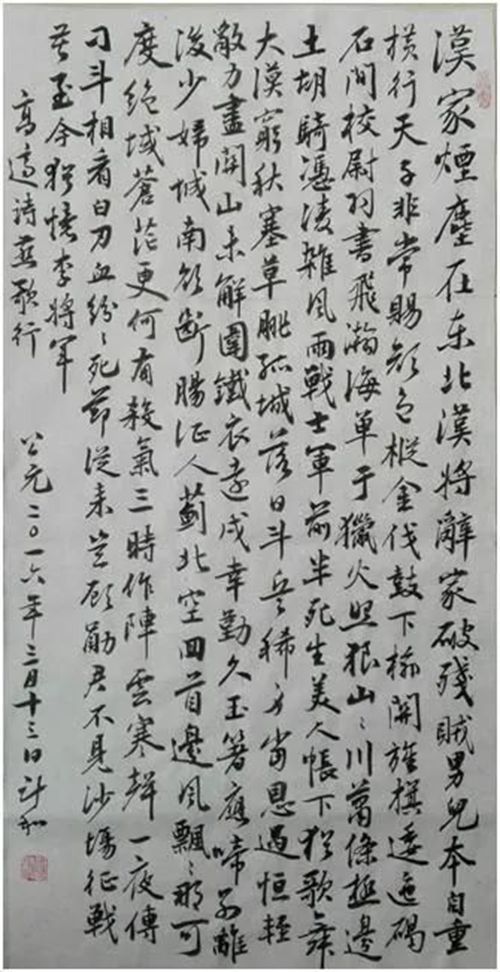 漢家煙塵在东北漢將辭家破残賊男兒本自重
横行天子非常賜颜色樅金伐鼓下榆關旌旗逶迤碣
石間校尉羽書飛瀚海单于獵火照狼山々川蕭條極邊
土胡騎憑凌雜風雨戰士軍前半死生美人帳下猶歌舞
大漠窮秋塞草腓孤城落日斗兵稀身當恩遇恒輕
敵力盡關山未解圍鐵衣遠戍辛勤久玉箸應啼别離
後少婦城南欲斷腸征人薊北空回首邊風飄々那可
度绝域蒼茫更何有殺氣三時作陣雲寒聲一夜傳
刁斗相看白刃血紛々死節從来豈顾勛君不見沙場征戰
苦至今猶憶李將軍
高適詩燕歌行
公元二〇一六年三月十三日